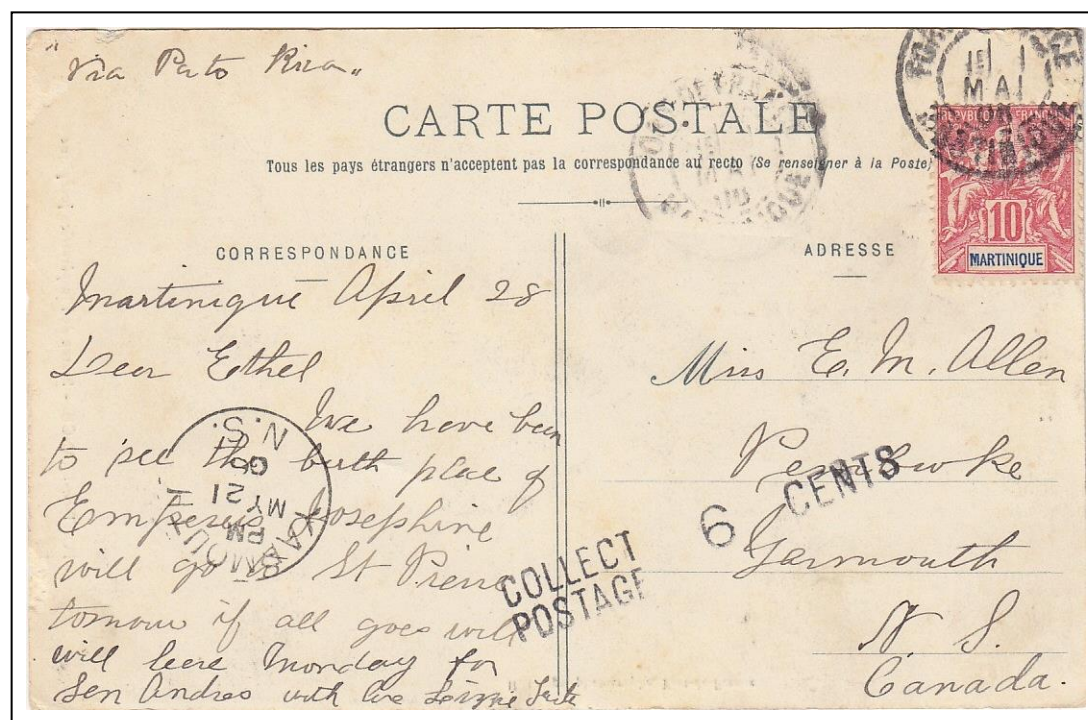 "Via Porto Rico"
CARTE POSTALE
Tous les pays étrangers n'acceptent pas la correspondance au recto (Se renseigner à la Poste)
MAI
MARTINIQUE
REPUBLIQUE FRANÇAISE
10
MARTINIQUE
CORRESPONDANCE
Martinique April 28
Dear Ethel
We have been
to see the birth place of
Empress Josephine
will go to St Pierre
tomorrow if all goes well
will leave Monday for
San Andres with love
YARMOUTH
PM
MY 21
N.S.
COLLECT
POSTAGE
6 CENTS
ADRESSE
Miss E. M. Allen
Pembroke
Yarmouth
N. S.
Canada.